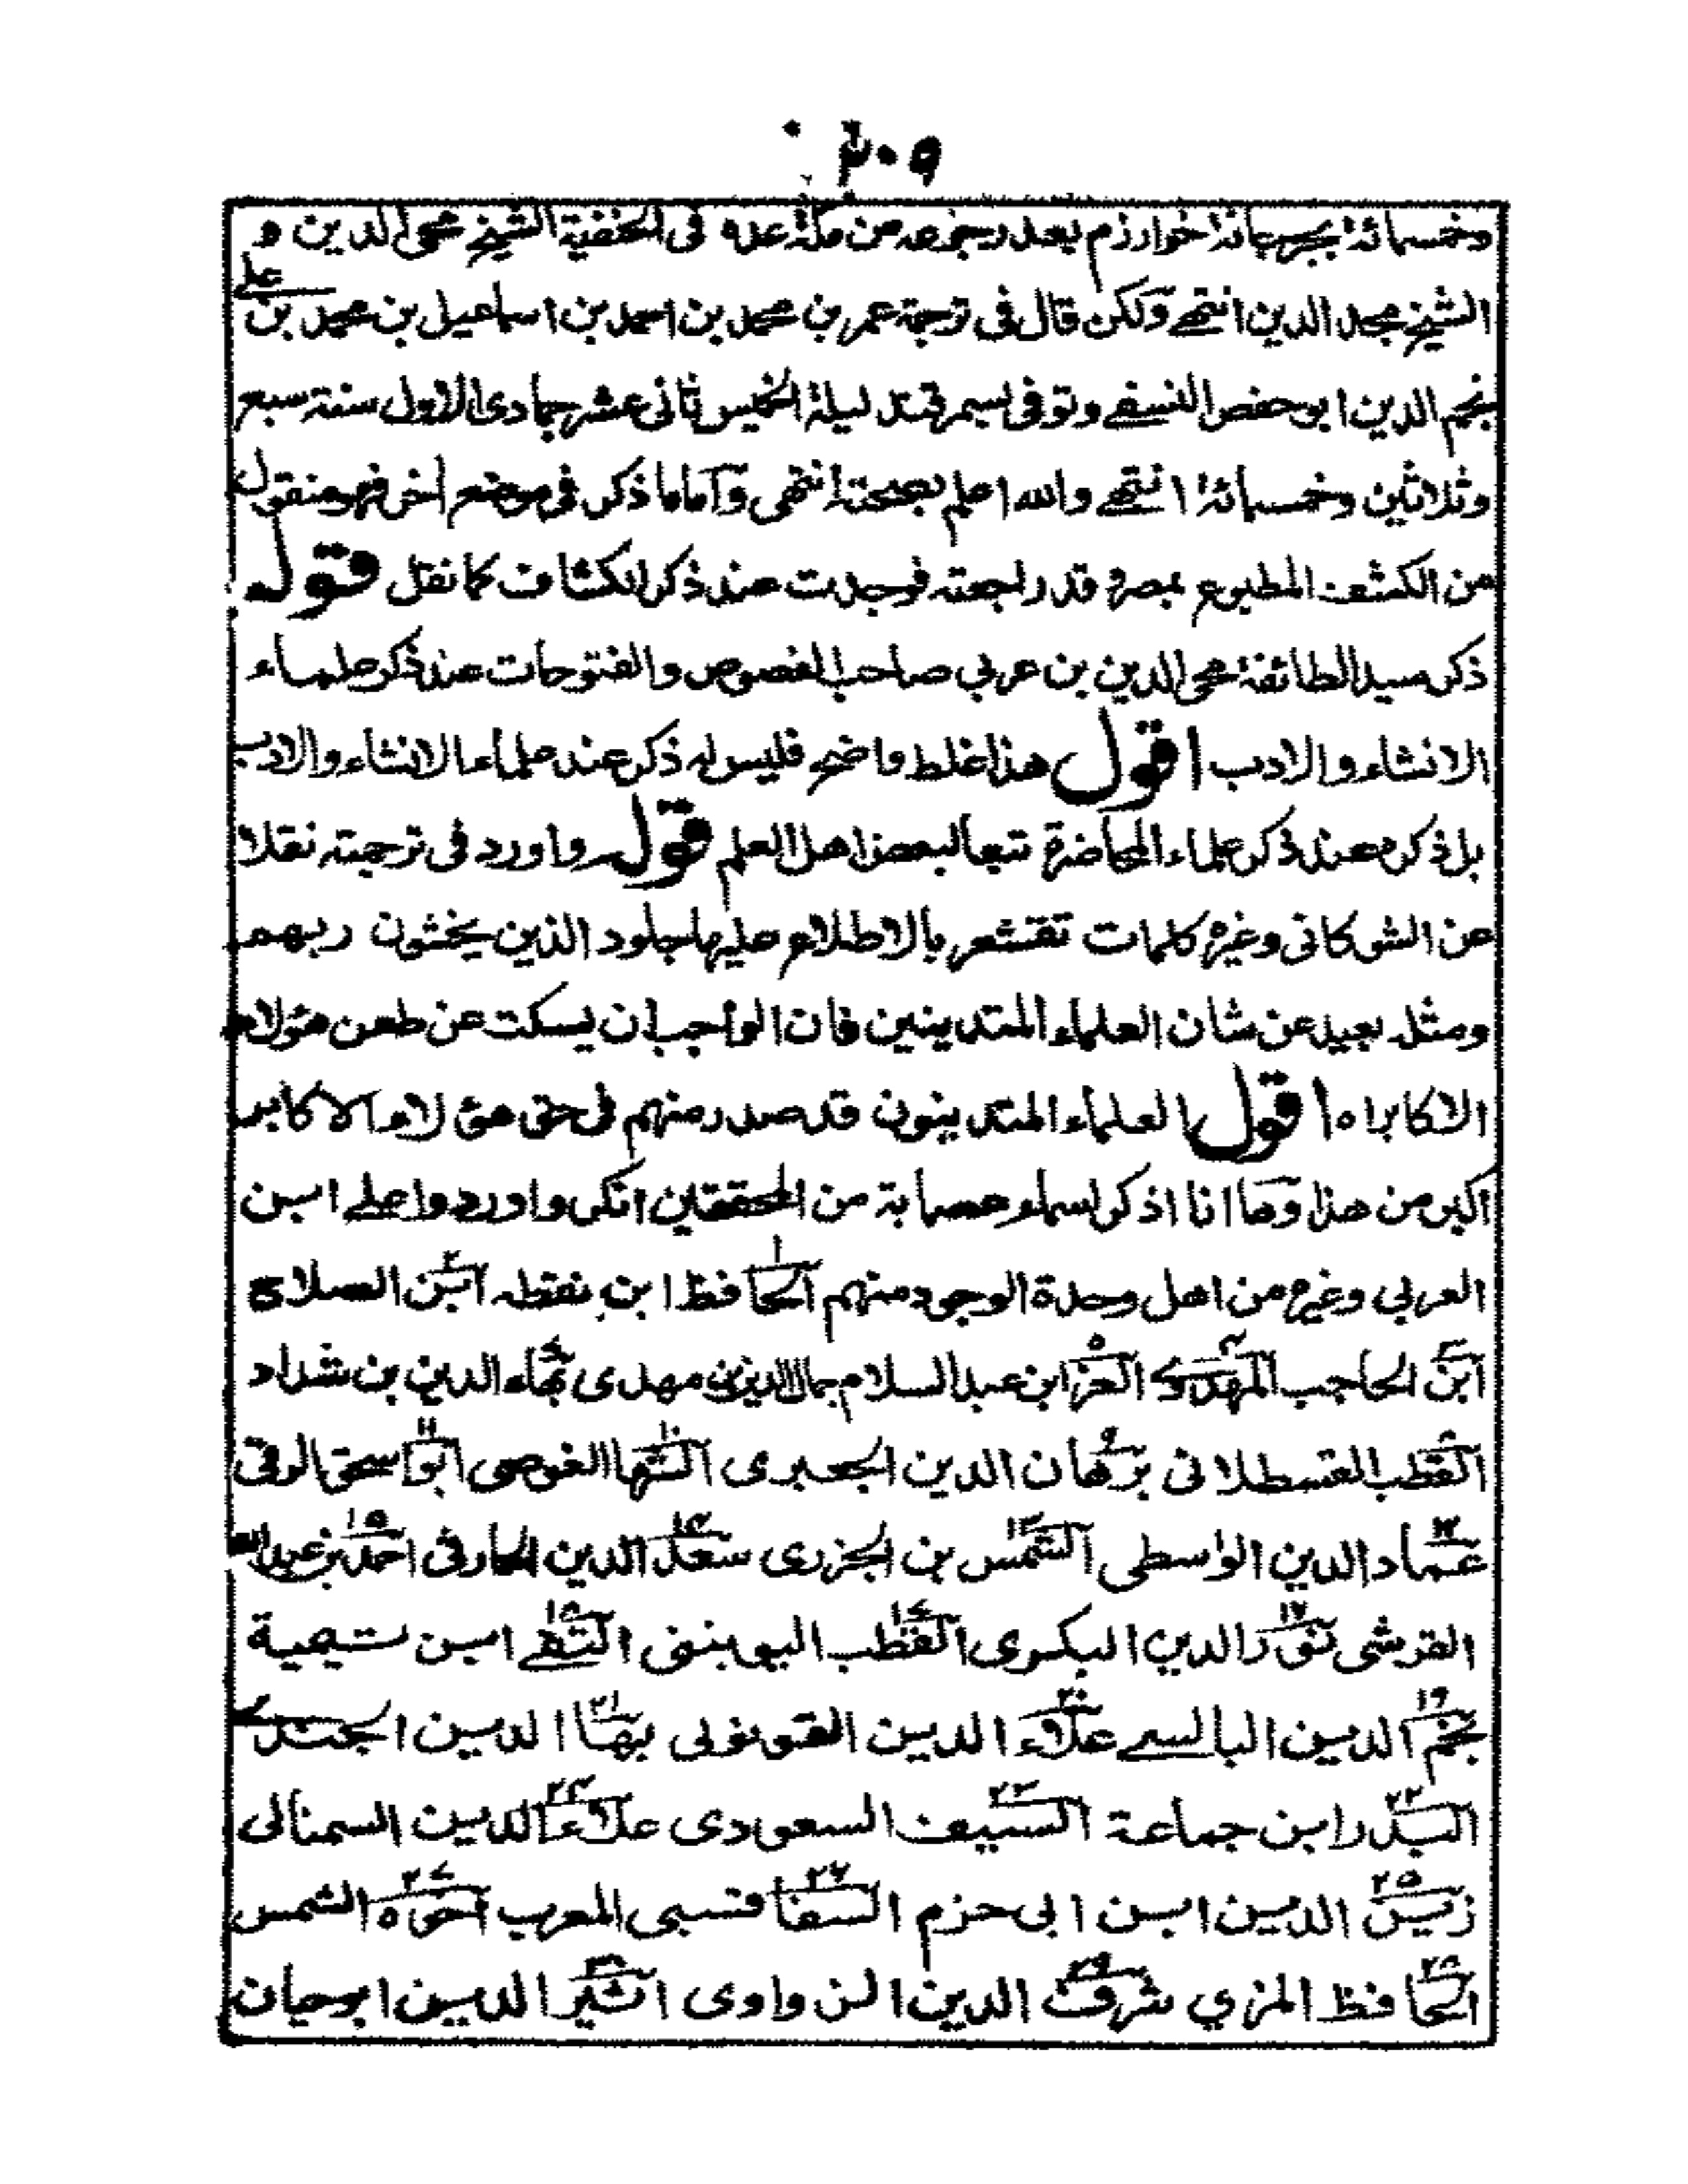 ٣٠٩
وخمسمائة بجرجانة خوارزم بعد رجوعه من مكة عده فى الحنفية الشيخ محى الدين و
الشيخ مجد الدين انتهے ولكن قال فى ترجمة عمر بن محمد بن احمد بن اسماعيل بن محمد بن علے
نجم الدين ابو حفص النسفے وتوفى بسمرقند ليلة الخميس ثانى عشر جمادى الاول سنة سبع
وثلاثين وخمسمائة انتهے والله اعلم بصحته انتهى وآما ما ذكر فى موضع اخر فهو منقول
من الكشف المطبوع بمصر وقد راجعته فوجدت عند ذكر الكشاف كما نقل قوله
ذكر سيد الطائفة محى الدين بن عربي صاحب الفصوص والفتوحات عند ذكر علماء
الانشاء والادب اقول هذا غلط واضح فليس له ذكر عند علماء الانشاء والادب
بل ذكره عند ذكر علماء المحاضرة تبعا لبعض اهل العلم قوله واورد فى ترجمته نقلا
عن الشوكانى وغيره كلمات تقشعر بالاطلاع عليها جلود الذين يخشون ربهم
ومثله بعيد عن شان العلماء المتدينين فان الواجب ان يسكت عن طعن هؤلاء
الاكابر اه اقول العلماء المتدينون قد صدر منهم فى حق هؤلاء الاكابر
اكبر من هذا وها انا اذكر اسماء عصابة من المحققين انكروا وردوا على ابن
العربي وغيره من اهل وحدة الوجود منهم الحافظ ابن نقطه ابن الصلاح
ابن الحاجب المهدوى العز ابن عبد السلام جمال الدين بن مهدى بهاء الدين بن شداد
القطب القسطلانى برهان الدين الجعبرى الشهاب الغوصى ابو اسحق الرقى
عماد الدين الواسطى الشمس بن الجزرى سعد الدين الحارثى احمد بن عبد الله
القرشى نور الدين البكرى القطب اليونينى التقے ابن تيمية
نجم الدين البالسے علاء الدين القونوى بهاء الدين الجندى
البدر ابن جماعة السيف السعودى علاء الدين السمنانى
زين الدين ابن ابى حزم السفاقسى المعرب اخوه الشمس
الحافظ المزي شرف الدين الزواوى اثير الدين ابو حيان